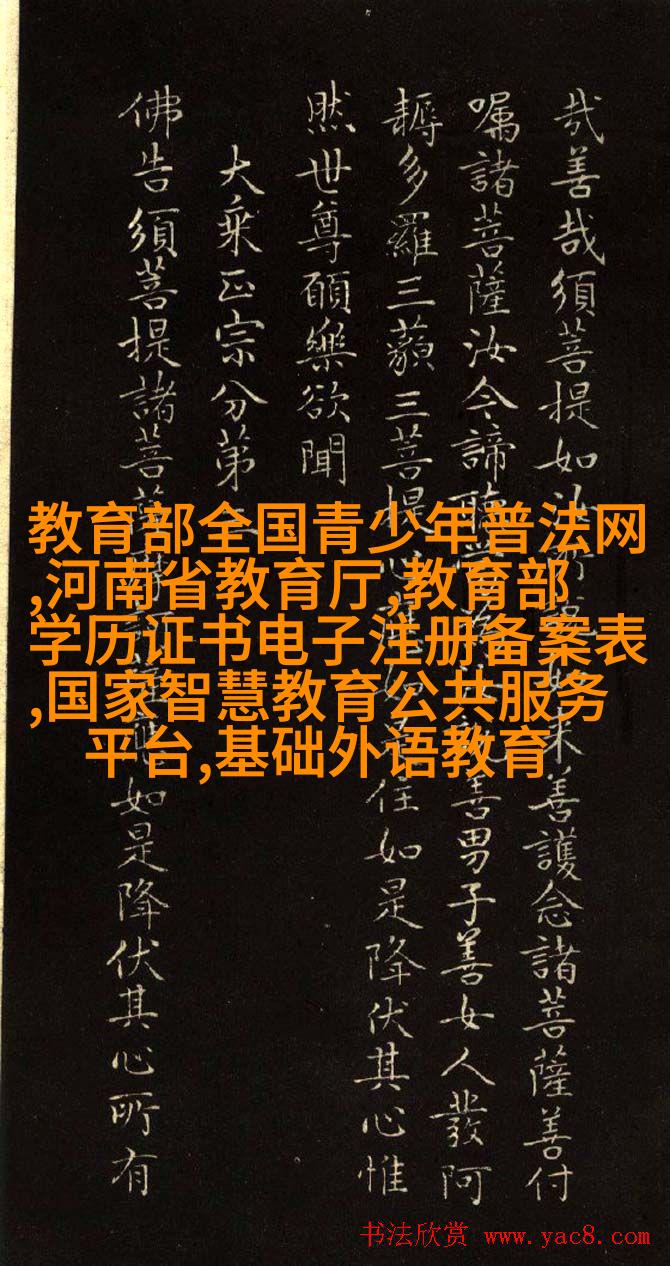 哉善哉須菩提如汝所說如来善護念諸菩薩善付
囑諸菩薩汝今諦聽善男子善女人發阿
耨多羅三藐三菩提心住如是降伏其心惟
然世尊願樂欲聞
大乘正宗分第
佛告須菩提諸菩薩摩訶如是降伏其心所有
教育部全国青少年普法网
,河南省教育厅,教育部
学历证书电子注册备案表
,国家智慧教育公共服务
平台,基础外语教育
书法欣赏 www.yac8.com